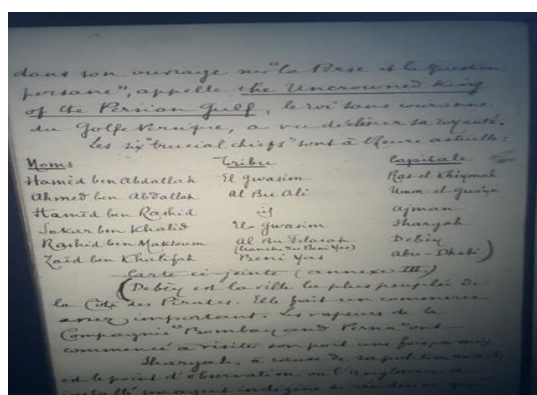 dans son ouvrage sur "la Perse et la question
persane", appelle the Uncrowned King
of the Persian Gulf, le roi sans couronne
du Golfe Persique, a vu décliner sa royauté.
Les six "trucial chiefs" sont à l'heure actuelle:
Noms Tribu Capitale
Hamed ben Abdallah El Gwasim Ras-el Khiymah
Ahmed ben Abdallah Al Bu Ali Umm-el-gwiyn
Hamed ben Rashid Ajman
Sakar ben Khalid El Gwasim Sharjah
Rashid ben Maktoum Al Bu Felasah Debëy
(branche des Beni Yas)
Zaïd ben Khalifah Beni Yas abu-Dhabi)
Carte ci-jointe (annexe III.)
(Debëy est la ville la plus peuplée de
la Côte des Pirates. Elle fait un commerce
assez important. Les vapeurs de la
Compagnie "Bombay and Persia" ont
commencé à visiter son port une fois par mois.
Sharjah, à cause de sa position
est le point d'observation où l'Angleterre a
installé un agent indigène